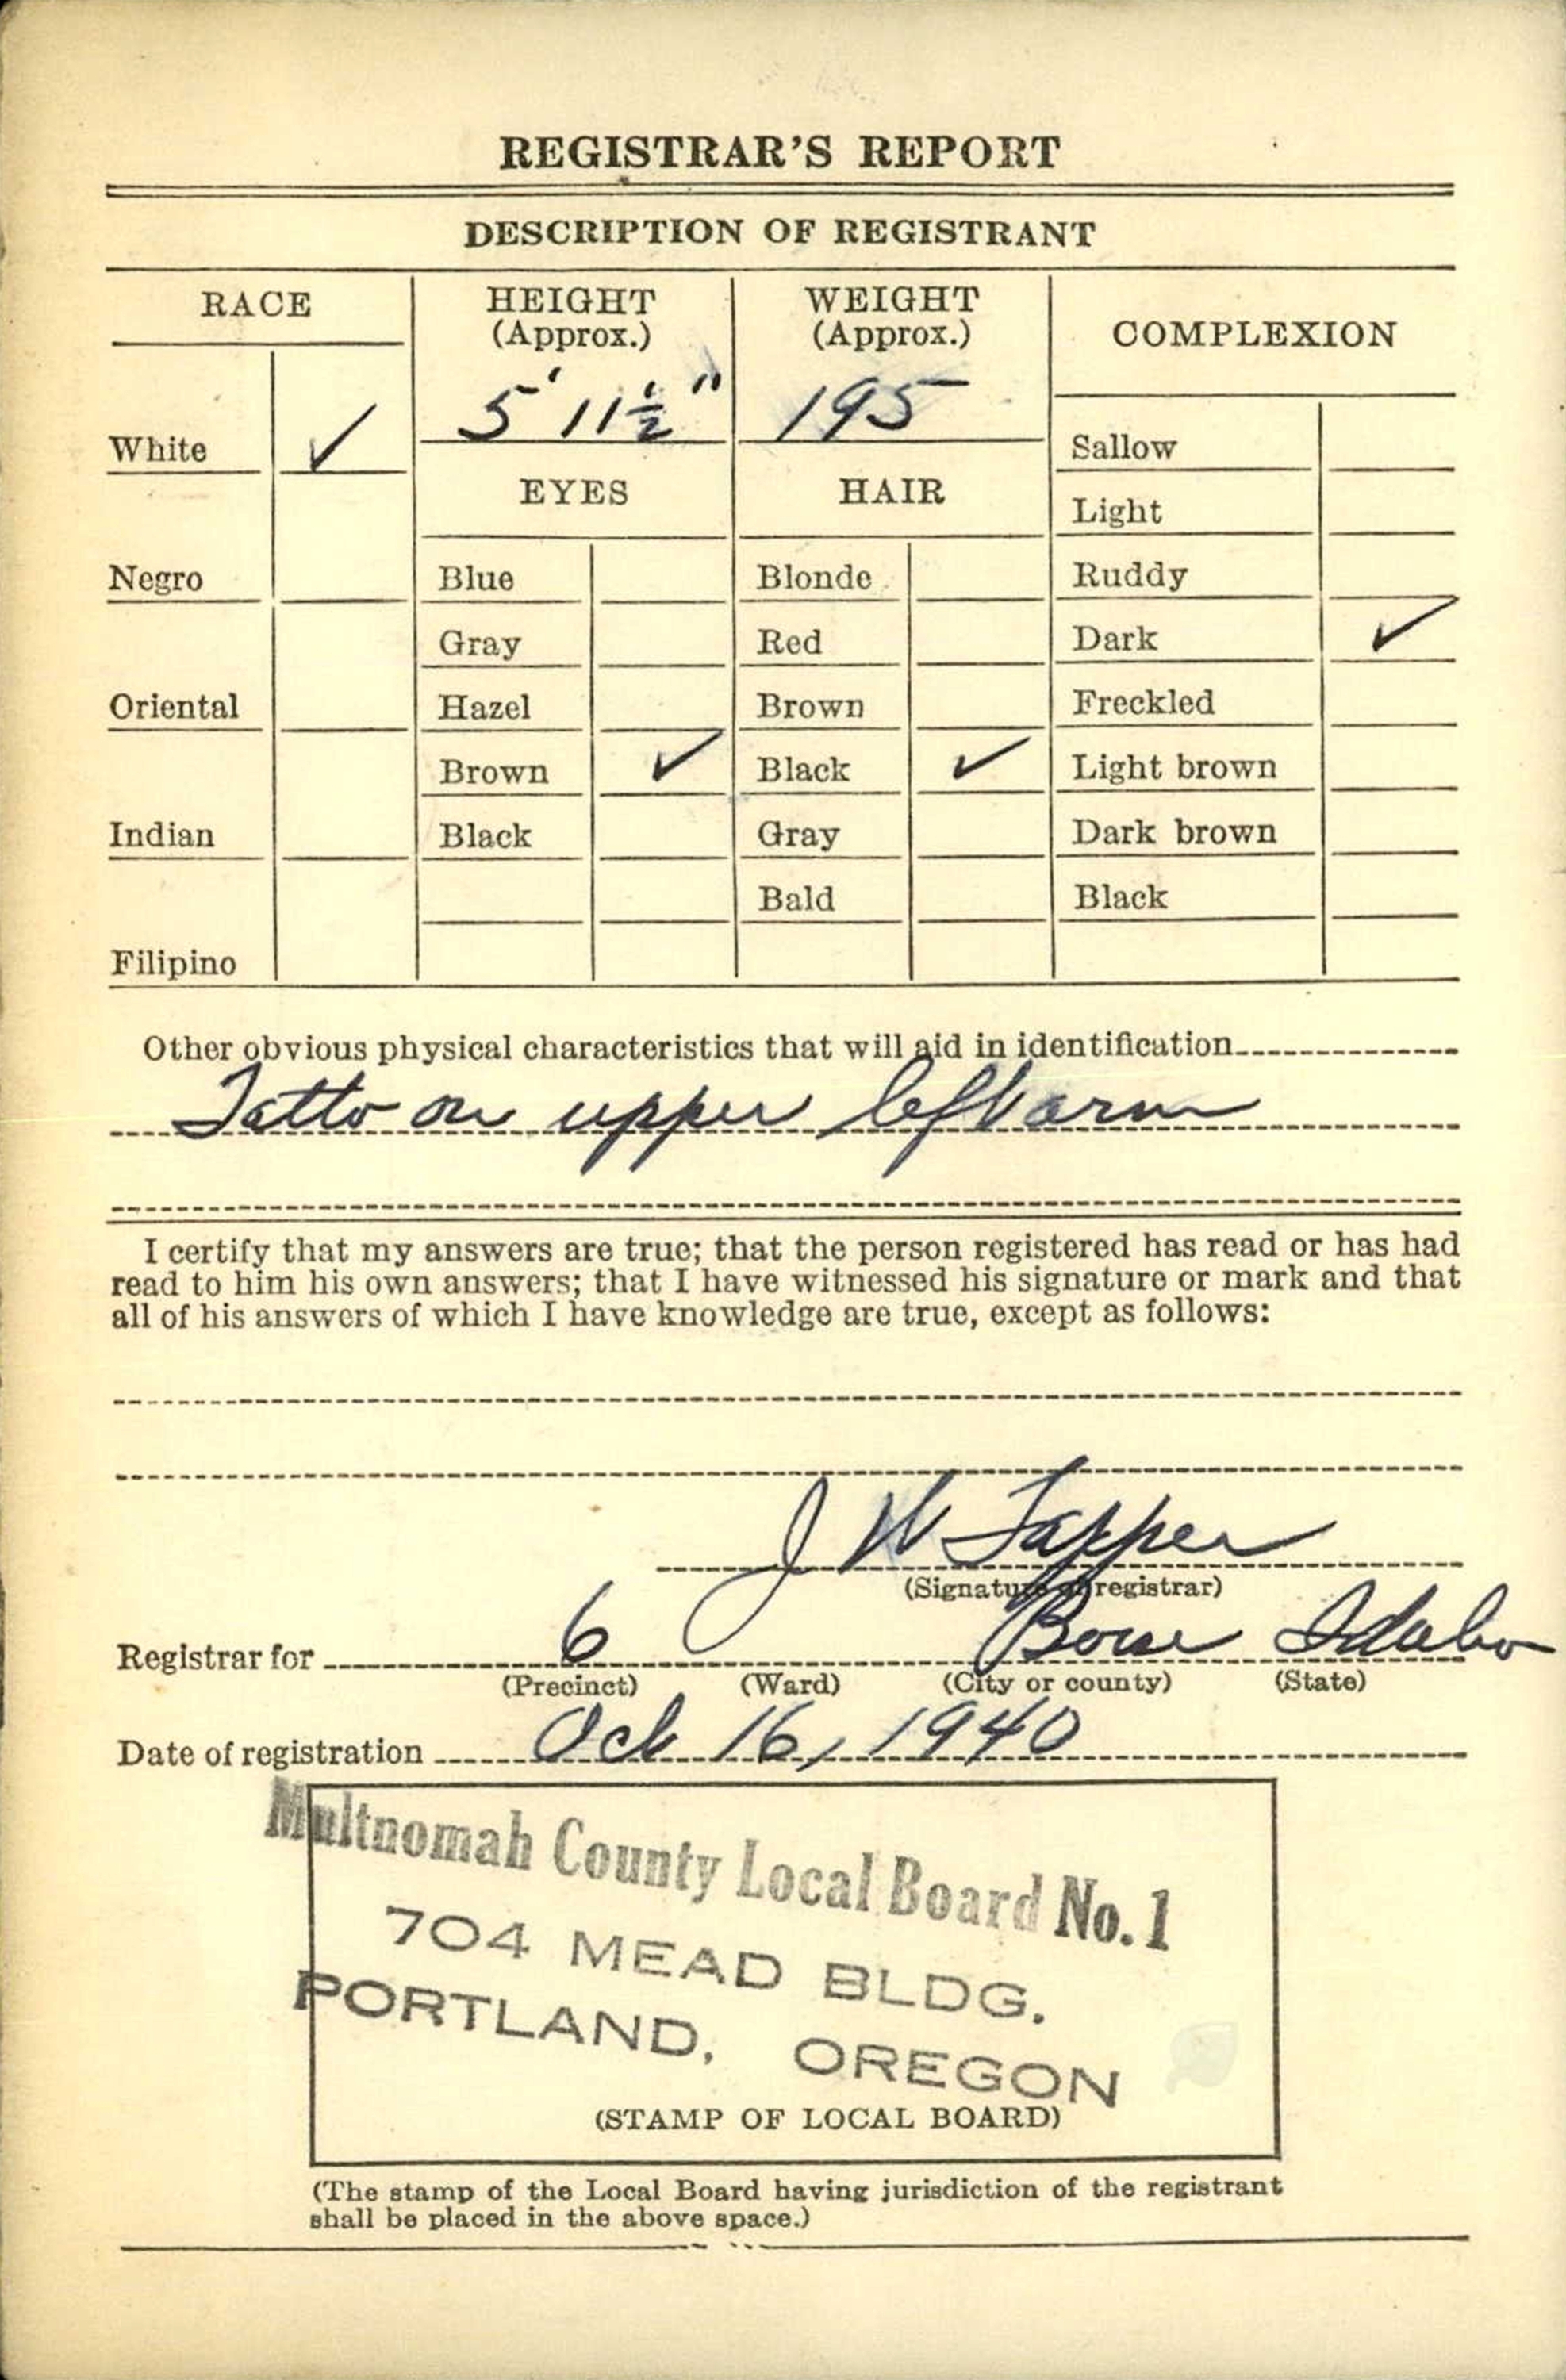 REGISTRAR'S REPORT
DESCRIPTION OF REGISTRANT
RACE
HEIGHT
(Approx.)
WEIGHT
(Approx.)
COMPLEXION
5' 11 1/2"
195
White ✓
Sallow
EYES
HAIR
Light
Negro
Blue
Blonde
Ruddy
Gray
Red
Dark ✓
Oriental
Hazel
Brown
Freckled
Brown ✓
Black ✓
Light brown
Indian
Black
Gray
Dark brown
Bald
Black
Filipino
Other obvious physical characteristics that will aid in identification
Tatto on upper left arm
I certify that my answers are true; that the person registered has read or has had
read to him his own answers; that I have witnessed his signature or mark and that
all of his answers of which I have knowledge are true, except as follows:
J W Tapper
(Signature of registrar)
Registrar for 6 Boise Idaho
(Precinct) (Ward) (City or county) (State)
Date of registration Oct 16, 1940
Multnomah County Local Board No. 1
704 MEAD BLDG.
PORTLAND, OREGON
(STAMP OF LOCAL BOARD)
(The stamp of the Local Board having jurisdiction of the registrant
shall be placed in the above space.)